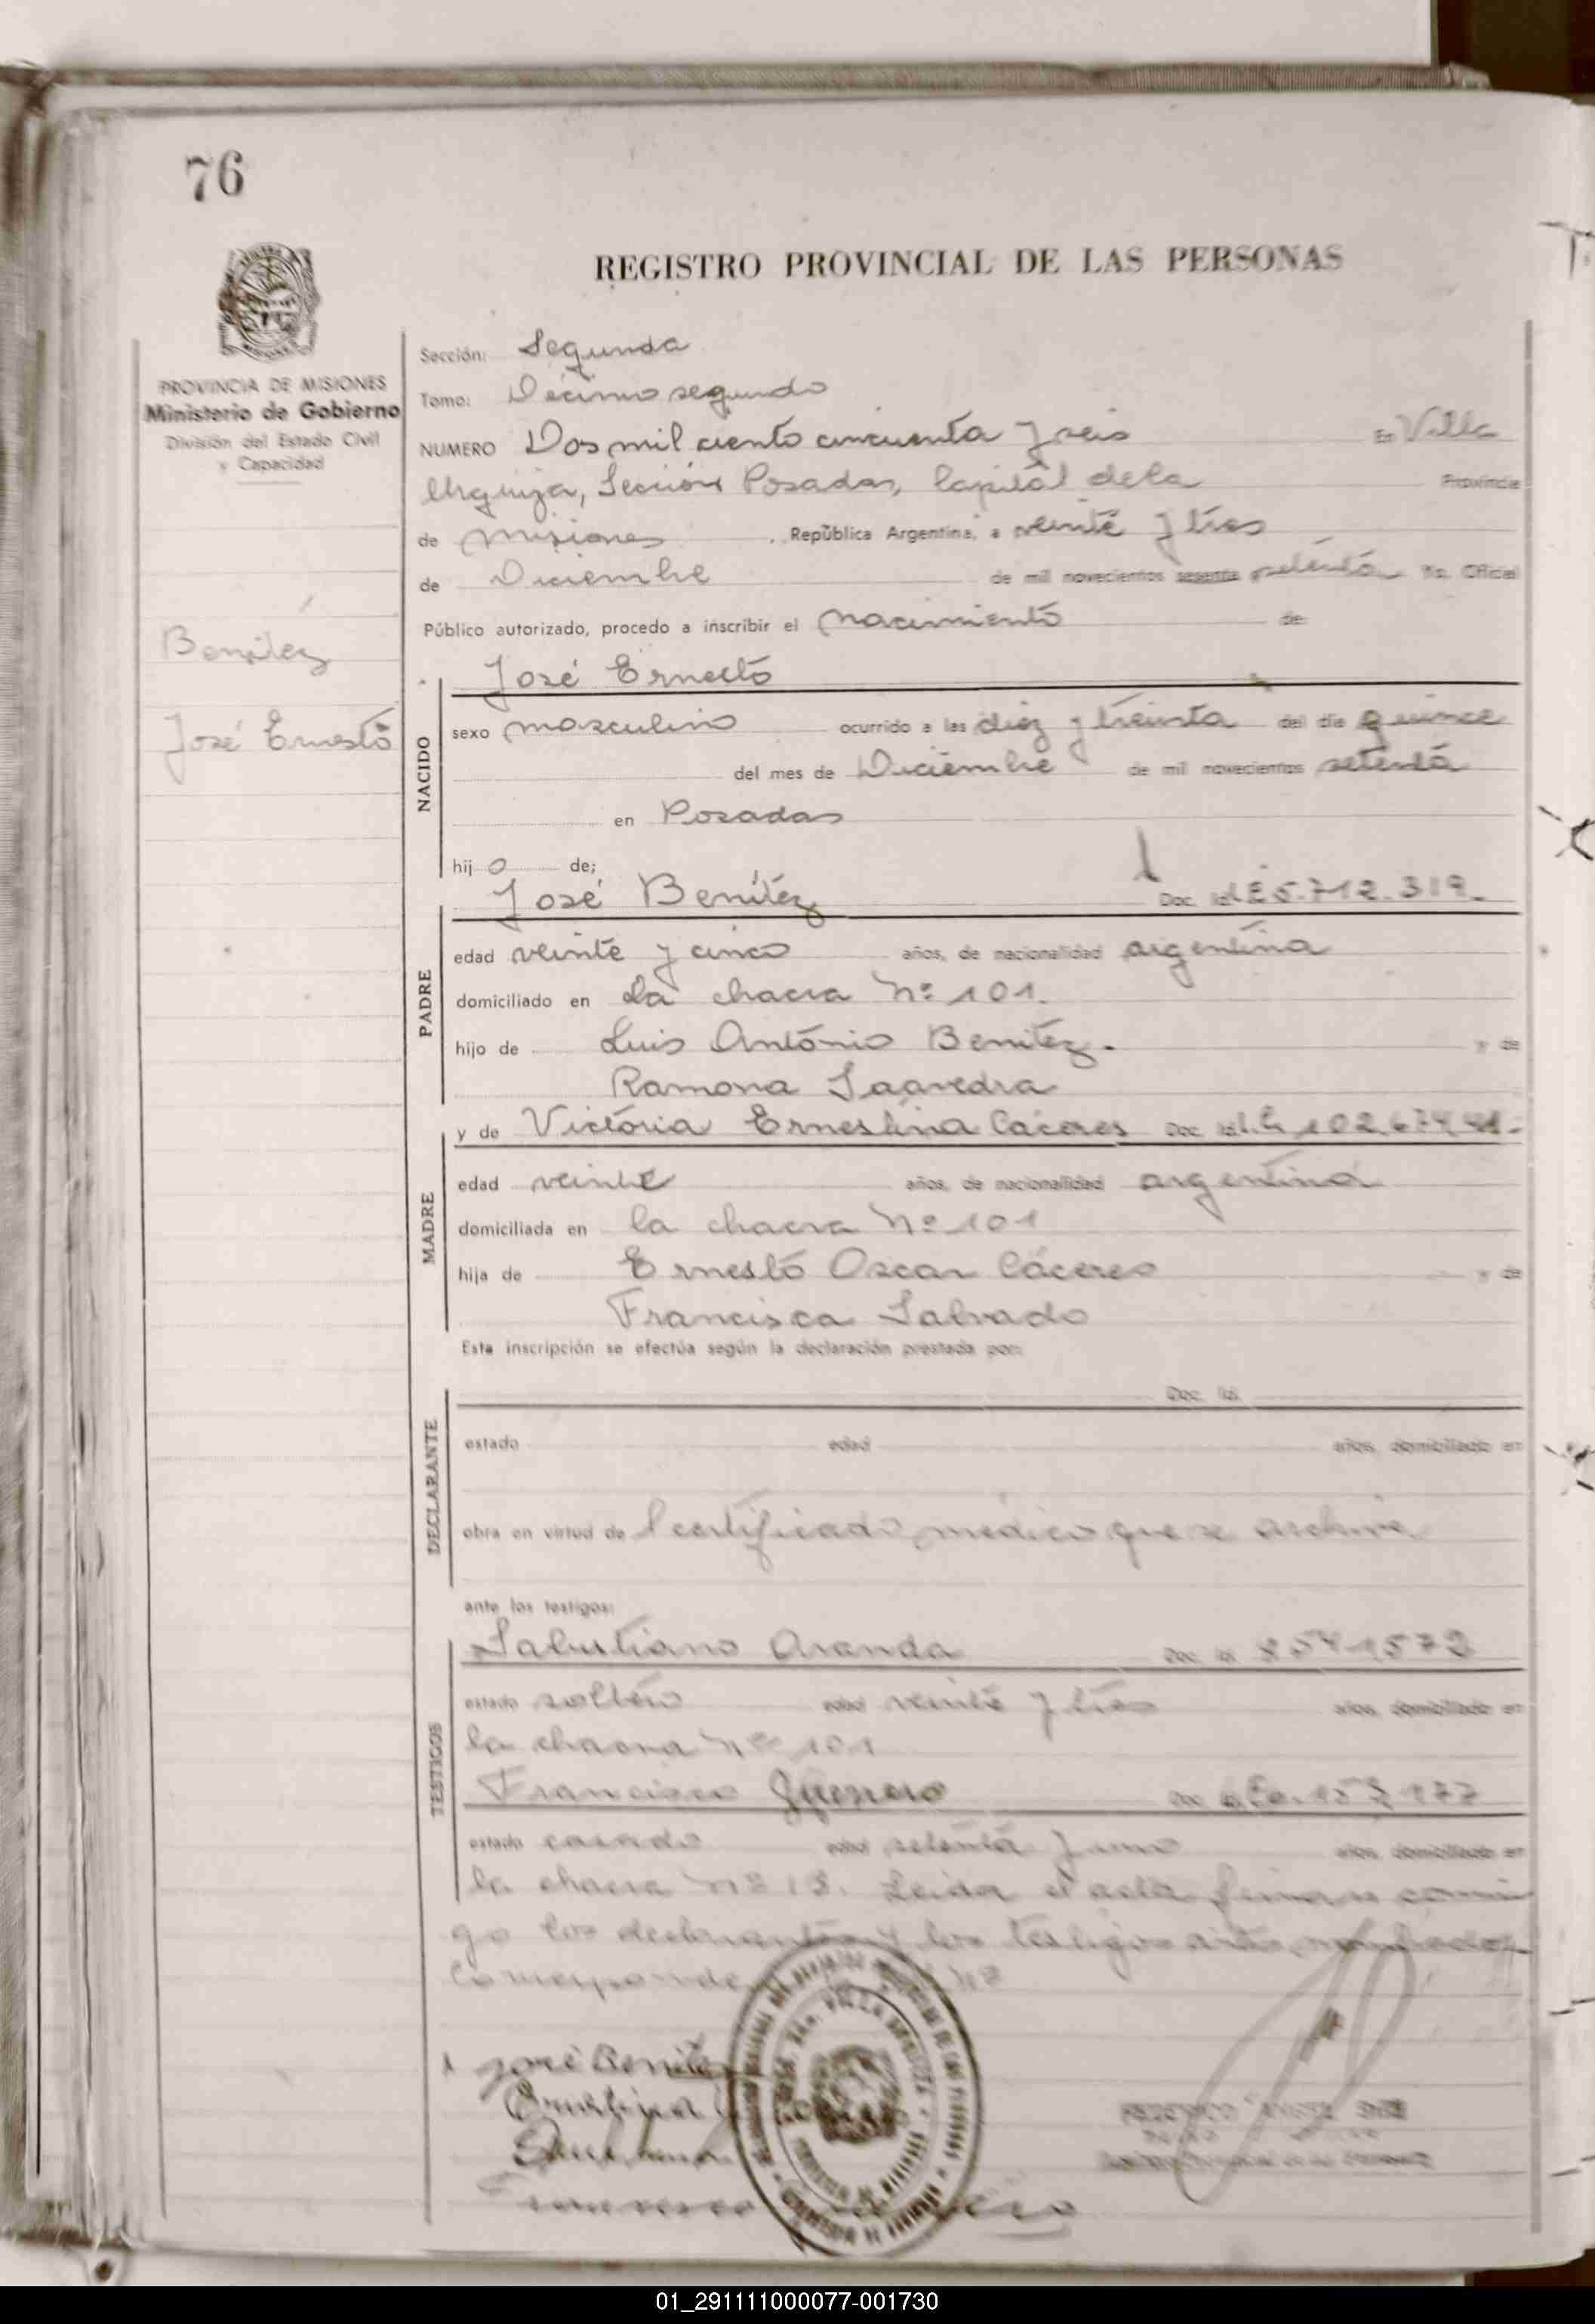 76
REGISTRO PROVINCIAL DE LAS PERSONAS
PROVINCIA DE MISIONES
Ministerio de Gobierno
División del Estado Civil
y Capacidad
Benitez
José Ernesto
Sección: Segunda
Tomo: Décimo segundo
NUMERO Dos mil ciento cincuenta y seis En Villa
Urquiza, Sección Posadas, Capital de la Provincia
de Misiones, República Argentina, a veinte y tres
de Diciembre de mil novecientos sesenta setenta Yo, Oficial
Público autorizado, procedo a inscribir el nacimiento de:
José Ernesto
NACIDO
sexo masculino ocurrido a las diez y treinta del día quince
del mes de Diciembre de mil novecientos setenta
en Posadas
hij o de;
José Benítez Doc. Id. 5.712.319.
PADRE
edad veinte y cinco años, de nacionalidad argentina
domiciliado en La chacra Nº 101.
hijo de Luis António Benitez. y de
Ramona Saavedra
y de Victória Ernestina Cáceres Doc. Id. 102.674
MADRE
edad veinte años, de nacionalidad argentina
domiciliada en la chacra Nº 101
hija de Ernesto Oscar Cáceres y de
Francisca Salvado
Esta inscripción se efectúa según la declaración prestada por:
Doc. Id.
DECLARANTE
estado edad años, domiciliado en
obra en virtud de l certificado médico que se archiva
ante los testigos:
Salustiano Aranda Doc. Id. 8541572
TESTIGOS
estado soltero edad veinte y tres años, domiciliado en
la chacra nº 101
Francisco Guerrero Doc. Id.
estado casado edad setenta y uno años, domiciliado en
la chacra nº 13. Leida el acta firman conmi
go los declarantes y los testigos antes nombrados
Corresponde
José Benitez
Ernestina
Francisco
01_291111000077-001730